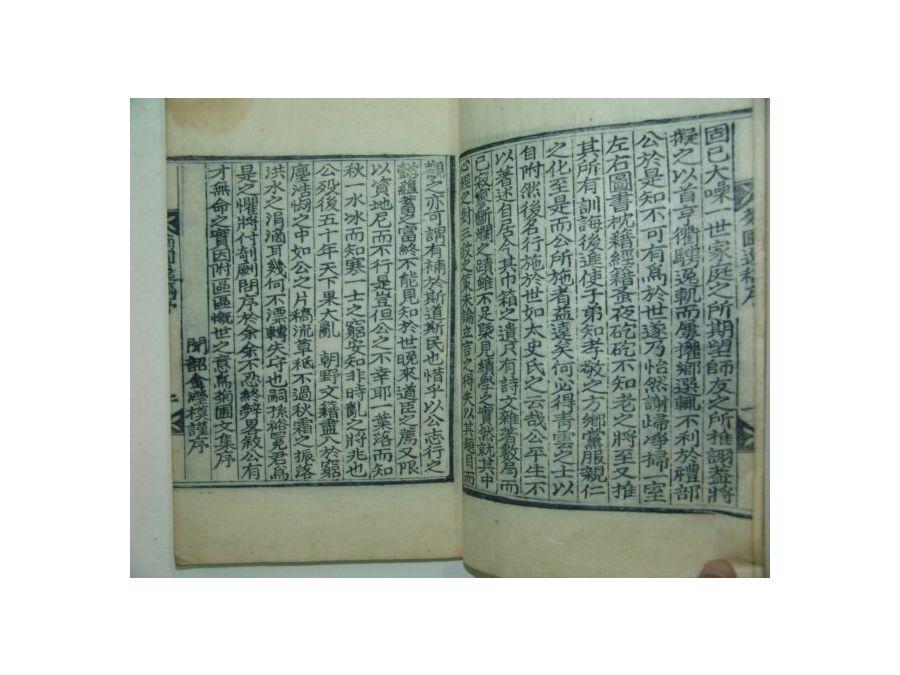 固已大噪一世家庭之所期望師友之所推詡蓋將
擬之以首亨衢騁逸軌而屢擢鄕選輒不利於禮部
公於是知不可有爲於世遂乃怡然謝歸淨掃一室
左右圖書枕籍經籍蚤夜矻矻不知老之將至又推
其所有訓誨後進使子弟知孝敬之方鄕黨服親仁
之化至是而公所施者益遠矣何必得靑雲之士以
自附然後名行施於世如太史氏之云哉公平生不
以著述自居今其巾箱之遺只有詩文雜著數局而
已叙爛之蹟雖不足以見績學之實然就其中
心經之對三政之策未論立言之得失以其題目而
觀之亦可謂有補於斯道斯民也惜乎以公志行之
蘊蓄之富終不能見知於世晩來道臣之薦又限
以資地尼而不行是豈但公之不幸耶一葉落而知
秋一水冰而知寒一士之窮安知非時亂之將兆也
公歿後五十年天下果大亂 朝野文籍盡入於窮
塵浩㥘之中如公之片稿流草秪不過秋霜之振落
洪水之涓滴耳幾何不漂轉失守也嗣孫裕冕君爲
是之懼將付剞劂問序於余余不忍終辭畧敘公有
才無命之實因附區區慨世之意爲菊圃文集序
聞韶金模謹序
菊圃逸稿序